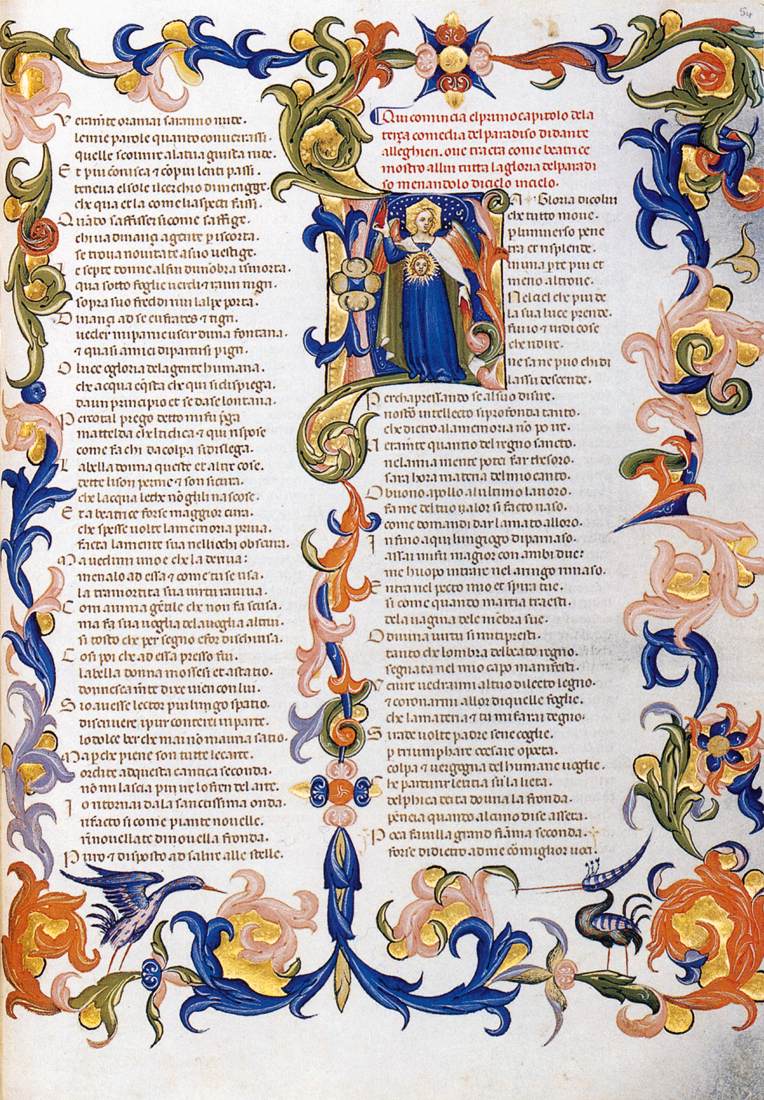 54
Veramẽte oramai saranno nude
le mie parole quanto converrassi
quelle scovrire ala tua guista rude.
Et piu corusca et cõ piu lenti passi
teneva el sole il cerchio di merigge
che qua et la come li aspecti fassi.
Quãdo saffisser si come saffige
chi va dinanzi a gente per iscorta
se trova novitate a suo vestige.
Le septe donne al fin dunõbra ismorta
qua sotto foglie verdi et rami nigri
sopra suo freddi rivi lalpe porta.
Dinanzi ad se eufrates et tigri
veder mi parve uscir duna fontana
et quasi amici dipartirsi pigri.
O luce o gloria de la gente humana
che acqua e q̃sta che qui si dispiega
da un principio et se da se lontana.
Per cotal prego detto mi fu prega
mattelda chel ti dica et qui rispose
come fa chi da colpa si dislega.
La bella donna queste et altre cose
dette li son per me et son sicura
che lacqua lethe nõ gli li nascose.
Et a beatrice forse maggior cura
che spesse volte la memoria priva
facta la mente sua nelli occhi obscura
Ma vedi uno e che la deriva:
menalo ad essa et come tu se usa
la tramortita sua virtu raviva
Com anima gẽtile che non fa scusa
ma fa sua voglia de la voglia altrui
si tosto che per segno e for dischiusa.
Cosi poi che ad essa presso fui
la bella donna mossesi et a statio
donnescamẽte dixe vien con lui
Sio avesse lector piu lungo spatio
di scrivere i pur conterei in parte
lo dolce ber che mai nõ mavria satio
Ma perche piene son tutte le carte
ordite ad questa cantica seconda
nõ mi lascia piu ire lo fren del arte
Io ritornai da la sanctissima onda
rifacto si come piante novelle
rinovellate di novella fronda
Puro et disposto ad salire alle stelle
Qui comincia el primo capitolo dela
terça comedia del paradiso di dante
alleghieri. ove tracta come beatrice
mostro allui tutta la gloria del paradi
so menandolo di cielo in cielo.
La Gloria di colui
che tutto move
per luniverso pene
tra et risplende
in una parte piu et
meno altrove.
Nel ciel che piu de
la sua luce prende
fu io et vidi cose
che ridire
ne sa ne puo chi di
lassu descende.
Perche apressando se al suo disire
nostro intellecto si profonda tanto
che dietro a la memoria nõ po ire
Veramẽte quantio del regno sancto
nela mia mente potei far thesoro
sara hora materia del mio canto
O buono apollo al ultimo lavoro
fa me del tuo valor si facto vaso
come domandi dar lamato alloro
In fino a qui lun giogo di parnaso
assai mi fu ma gior con ambi due
me huopo intrare nel aringo rimaso.
Entra nel pecto mio et spira tue
si come quando marsia traesti
dela vagina dele mẽbra sue.
O divina virtu si mi ti presti
tanto che lombra del beato regno
segnata nel mio capo manifesti
Venire vedrami al tuo dilecto legno
et coronarmi allor di quelle foglie
che la materia et tu mi farai degno
Si rade volte padre se ne coglie
per triumphare o cesare o poeta
colpa et vergogna del humane voglie
Che parturir letitia su la lieta
delphica deita dovria la fronda
peneia quanto alcuno di se asseta.
Poca favilla grand fiãma seconda
forse di dietro ad me cõ miglior voci